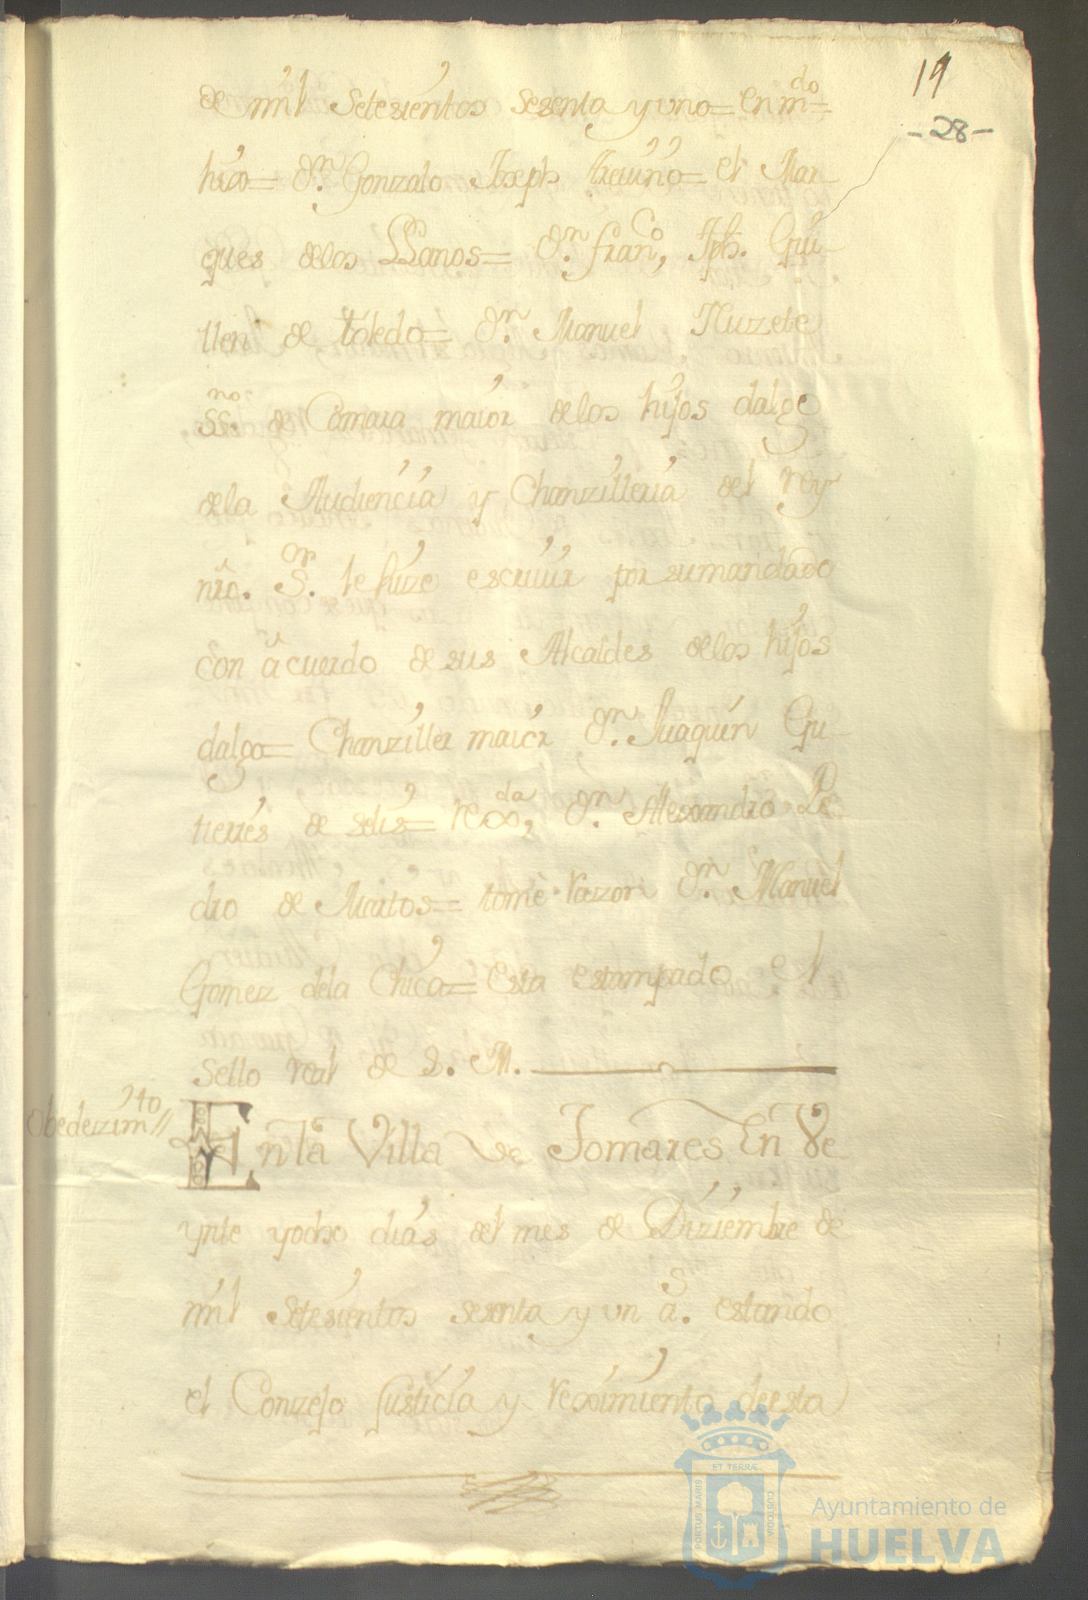 19
-28-
de mil Setesientos sesenta y uno= en m.do=
hizo= Dn. Gonzalo Joseph treuiño= el Mar
ques delos Llanos= Dn. Franco, Jph. Gui-
llen de toledo= Dn. Manuel Nuzete
SSno. de Cámara maior delos hijos dalgo
dela Audiencia y Chanzilleria del rey
nro. Sor. le hize escriuir por su mandado
con acuerdo de sus Alcaldes delos hijos
dalgo= Chanziller maior Dn. Juaquin Gu-
tierres de solis= rexda, Dn. Alexandro Pe
dro de Martos= tomè razon Dn. Manuel
Gomez dela Chica= Esta estampado el
Sello real de S. M.
Obedezimto//
En la Villa de Tomares En Ve
ynte y ocho dias del mes de Diziembre de
mil Setesientos sesenta y un as. estando
el Conzejo Justicia y reximiento de esta
PORTUS MARIS ET TERRÆ CUSTODIA
Ayuntamiento de
HUELVA